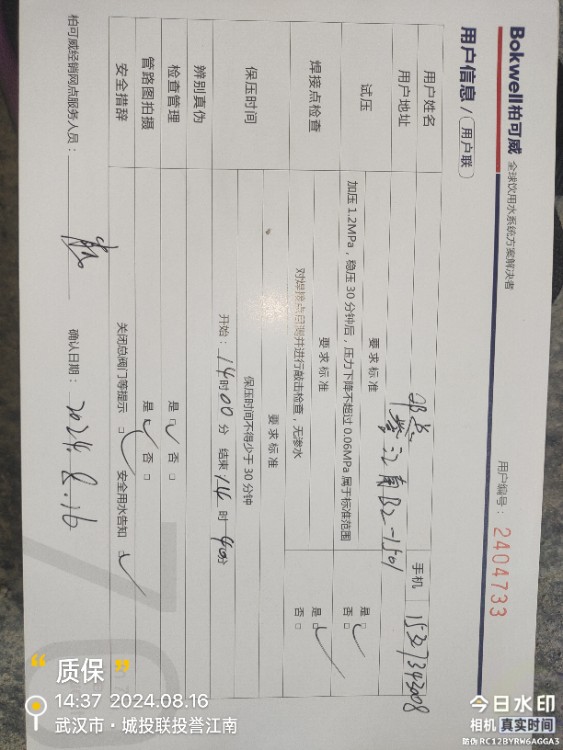 Bokwell柏可威 全球饮用水系统方案解决者
用户信息 / 用户联
用户编号： 2404733
用户姓名 手机
用户地址 誉江南B2-1501
试压 要求标准
加压 1.2MPa，稳压 30 分钟后，压力下降不超过 0.06MPa 属于标准范围 是□✓ 否□
焊接点检查 要求标准
对焊接点目测并进行敲击检查，无渗水 是□✓ 否□
保压时间 要求标准
保压时间不得少于 30 分钟
开始：14时00分 结束：14时40分
辨别真伪
检查管理 是□✓ 否□
管路图拍摄 是□✓ 否□
安全措辞 关闭总阀门等提示 □✓ 安全用水告知 □✓
柏可威经销网点服务人员： 确认日期： 2024.8.16
“ 质保 ”
14:37 2024.08.16
武汉市·城投联投誉江南
今日水印
相机 真实时间
防伪 RC12BYRW6AGGA3